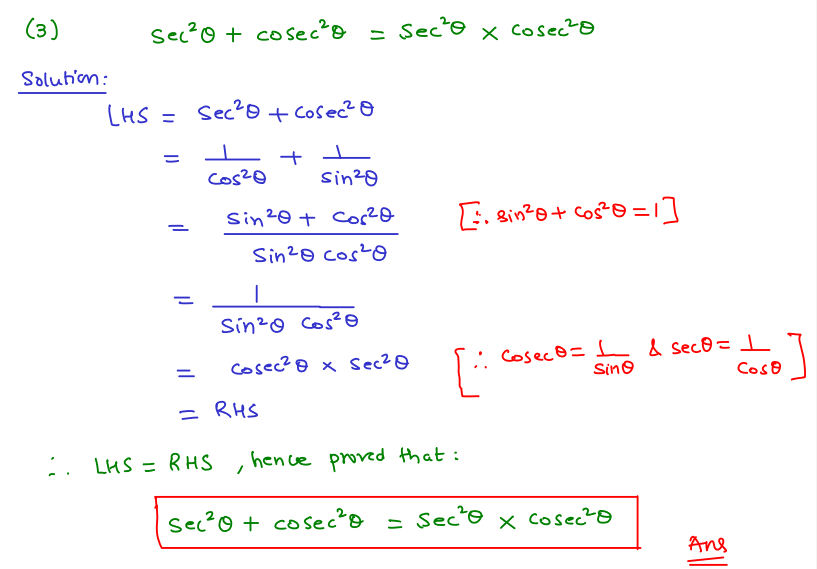 (3) sec²θ + cosec²θ = sec²θ × cosec²θ
Solution:
LHS = sec²θ + cosec²θ
= 1/cos²θ + 1/sin²θ
= (sin²θ + cos²θ)/(sin²θ cos²θ) [∵ sin²θ + cos²θ = 1]
= 1/(sin²θ cos²θ)
= cosec²θ × sec²θ [∵ cosecθ = 1/sinθ & secθ = 1/cosθ]
= RHS
∴ LHS = RHS, hence proved that:
sec²θ + cosec²θ = sec²θ × cosec²θ
Ans